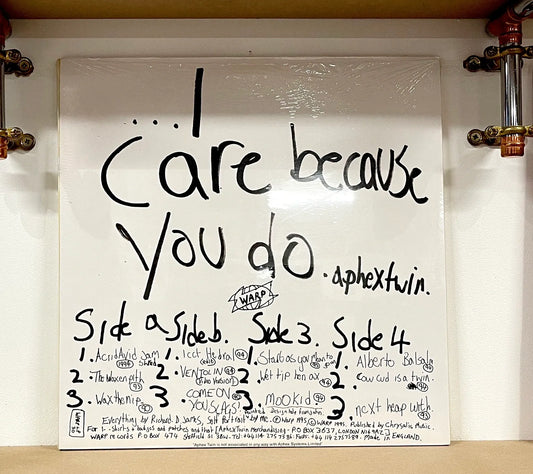 ...I
Care because
you do. aphextwin.
WARP
Side a Side b. Side 3. Side 4
1. Acrid Avid Jam Shred (94)
2. The Waxen pth (93)
3. Wax the nip
1. Icct Hedral (94) (edit)
2. VENTOLIN (94) (video version)
3. COME ON YOU SLAGS!
1. Start as you mean to go on
2. Wet tip hen ax (94)
3. MOOKID (94)
1. Alberto Balsalm
2. Cow cud is a twin. (94)
3. next heap with. (93)
Everything by Richard. D. James, Self Portrait by me. ℗ Warp 1995 © WARP 1995. Published by Chrysalis Music.
For t-shirts & badges and patches and that [Aphex Twin merchandising - PO BOX 3637, LONDON N16 9AZ]
WARP records PO Box 474 Sheffield Made in ENGLAND.
"Aphex Twin is not associated in any way with Aphex Systems Limited"